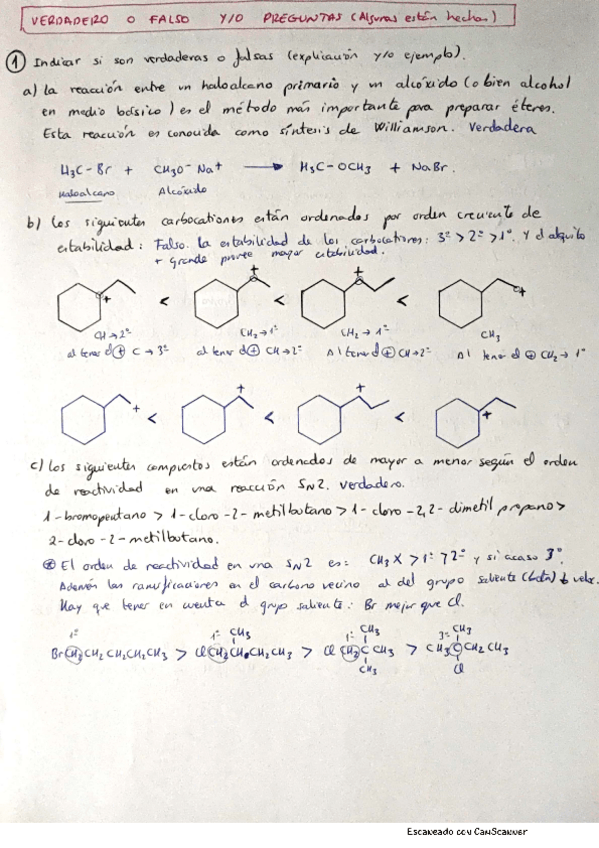 VERDADEIRO O FALSO Y/O PREGUNTAS (Algunas están hechas)
① Indicar si son verdaderas o falsas (explicación y/o ejemplo).
a) La reacción entre un haloalcano primario y un alcóxido (o bien alcohol
en medio básico) es el método más importante para preparar éteres.
Esta reacción es conocida como síntesis de Williamson. Verdadera
H₃C-Br + CH₃O⁻Na⁺ → H₃C-OCH₃ + NaBr.
Haloalcano Alcóxido
b) Los siguientes carbocationes están ordenados por orden creciente de
estabilidad: Falso. La estabilidad de los carbocationes: 3º > 2º > 1º. Y el alquilo
+ grande mayor estabilidad.
+ < + < + < +
CH → 2º CH₂ → 1º CH₂ → 1º CH₃
al tener el ⊕ C → 3º al tener el ⊕ CH → 2º Al tener el ⊕ CH → 2º Al tener el ⊕ CH₂ → 1º
+ < + < + < +
c) Los siguientes compuestos están ordenados de mayor a menor según el orden
de reactividad en una reacción SN2. Verdadero.
1-bromopentano > 1-cloro-2-metilbutano > 1-cloro-2,2-dimetil propano >
2-cloro-2-metilbutano.
El orden de reactividad en una SN2 es: CH₃X > 1º > 2º y si acaso 3º.
Además las ramificaciones en el carbono vecino al del grupo saliente (beta) ↓ veloc.
Hay que tener en cuenta el grupo saliente: Br mejor que Cl.
1º 1º CH₃ 1º CH₃ 3º CH₃
BrCH₂CH₂CH₂CH₂CH₃ > ClCH₂CH CH₂CH₃ > Cl CH₂CCH₃ > CH₃CCH₂CH₃
CH₃ Cl
Escaneado con CamScanner